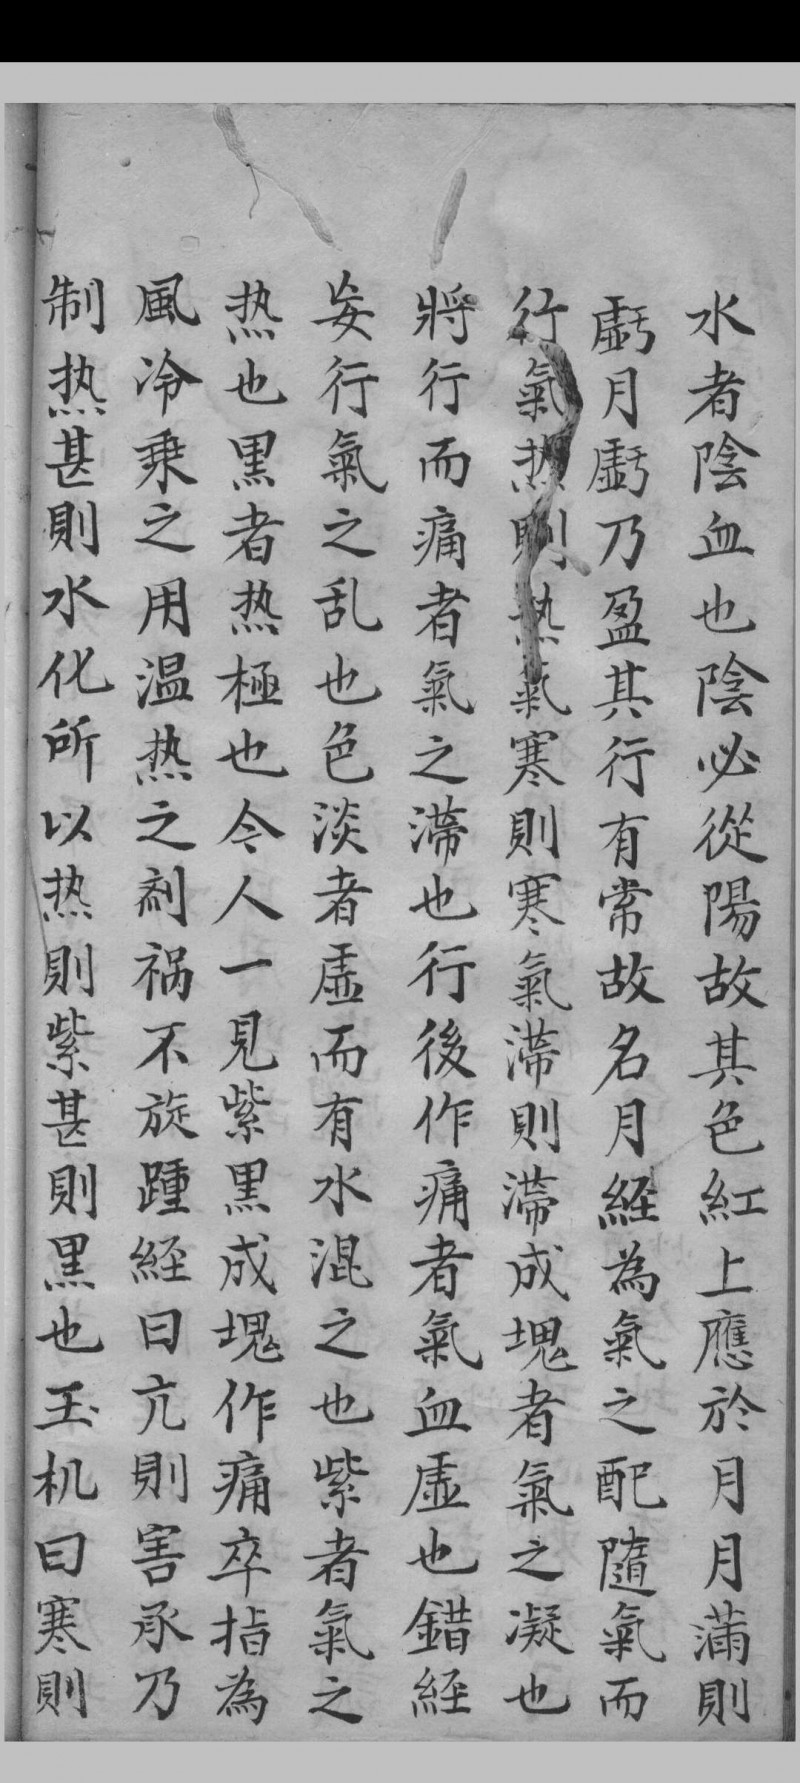 水者陰血也陰必從陽故其色紅上應於月月滿則
虧月虧乃盈其行有常故名月經為氣之配隨氣而
行氣热則热氣寒則寒氣滯則滯成塊者氣之凝也
將行而痛者氣之滯也行後作痛者氣血虛也錯經
妄行氣之乱也色淡者虛而有水混之也紫者氣之
热也黒者热極也令人一見紫黒成塊作痛卒指為
風冷乗之用温热之剤祸不旋踵経曰亢則害承乃
制热甚則水化所以热則紫甚則黒也玉机曰寒則